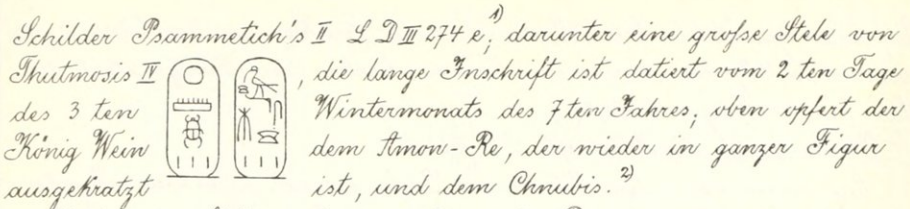 Schilder Psammetich's II L D III 274 e;¹⁾ darunter eine große Stele von
Thutmosis IV , die lange Inschrift ist datiert vom 2 ten Tage
des 3 ten Wintermonats des 7 ten Jahres; oben opfert der
König Wein dem Amon-Re, der wieder in ganzer Figur
ausgekratzt ist, und dem Chnubis.²⁾